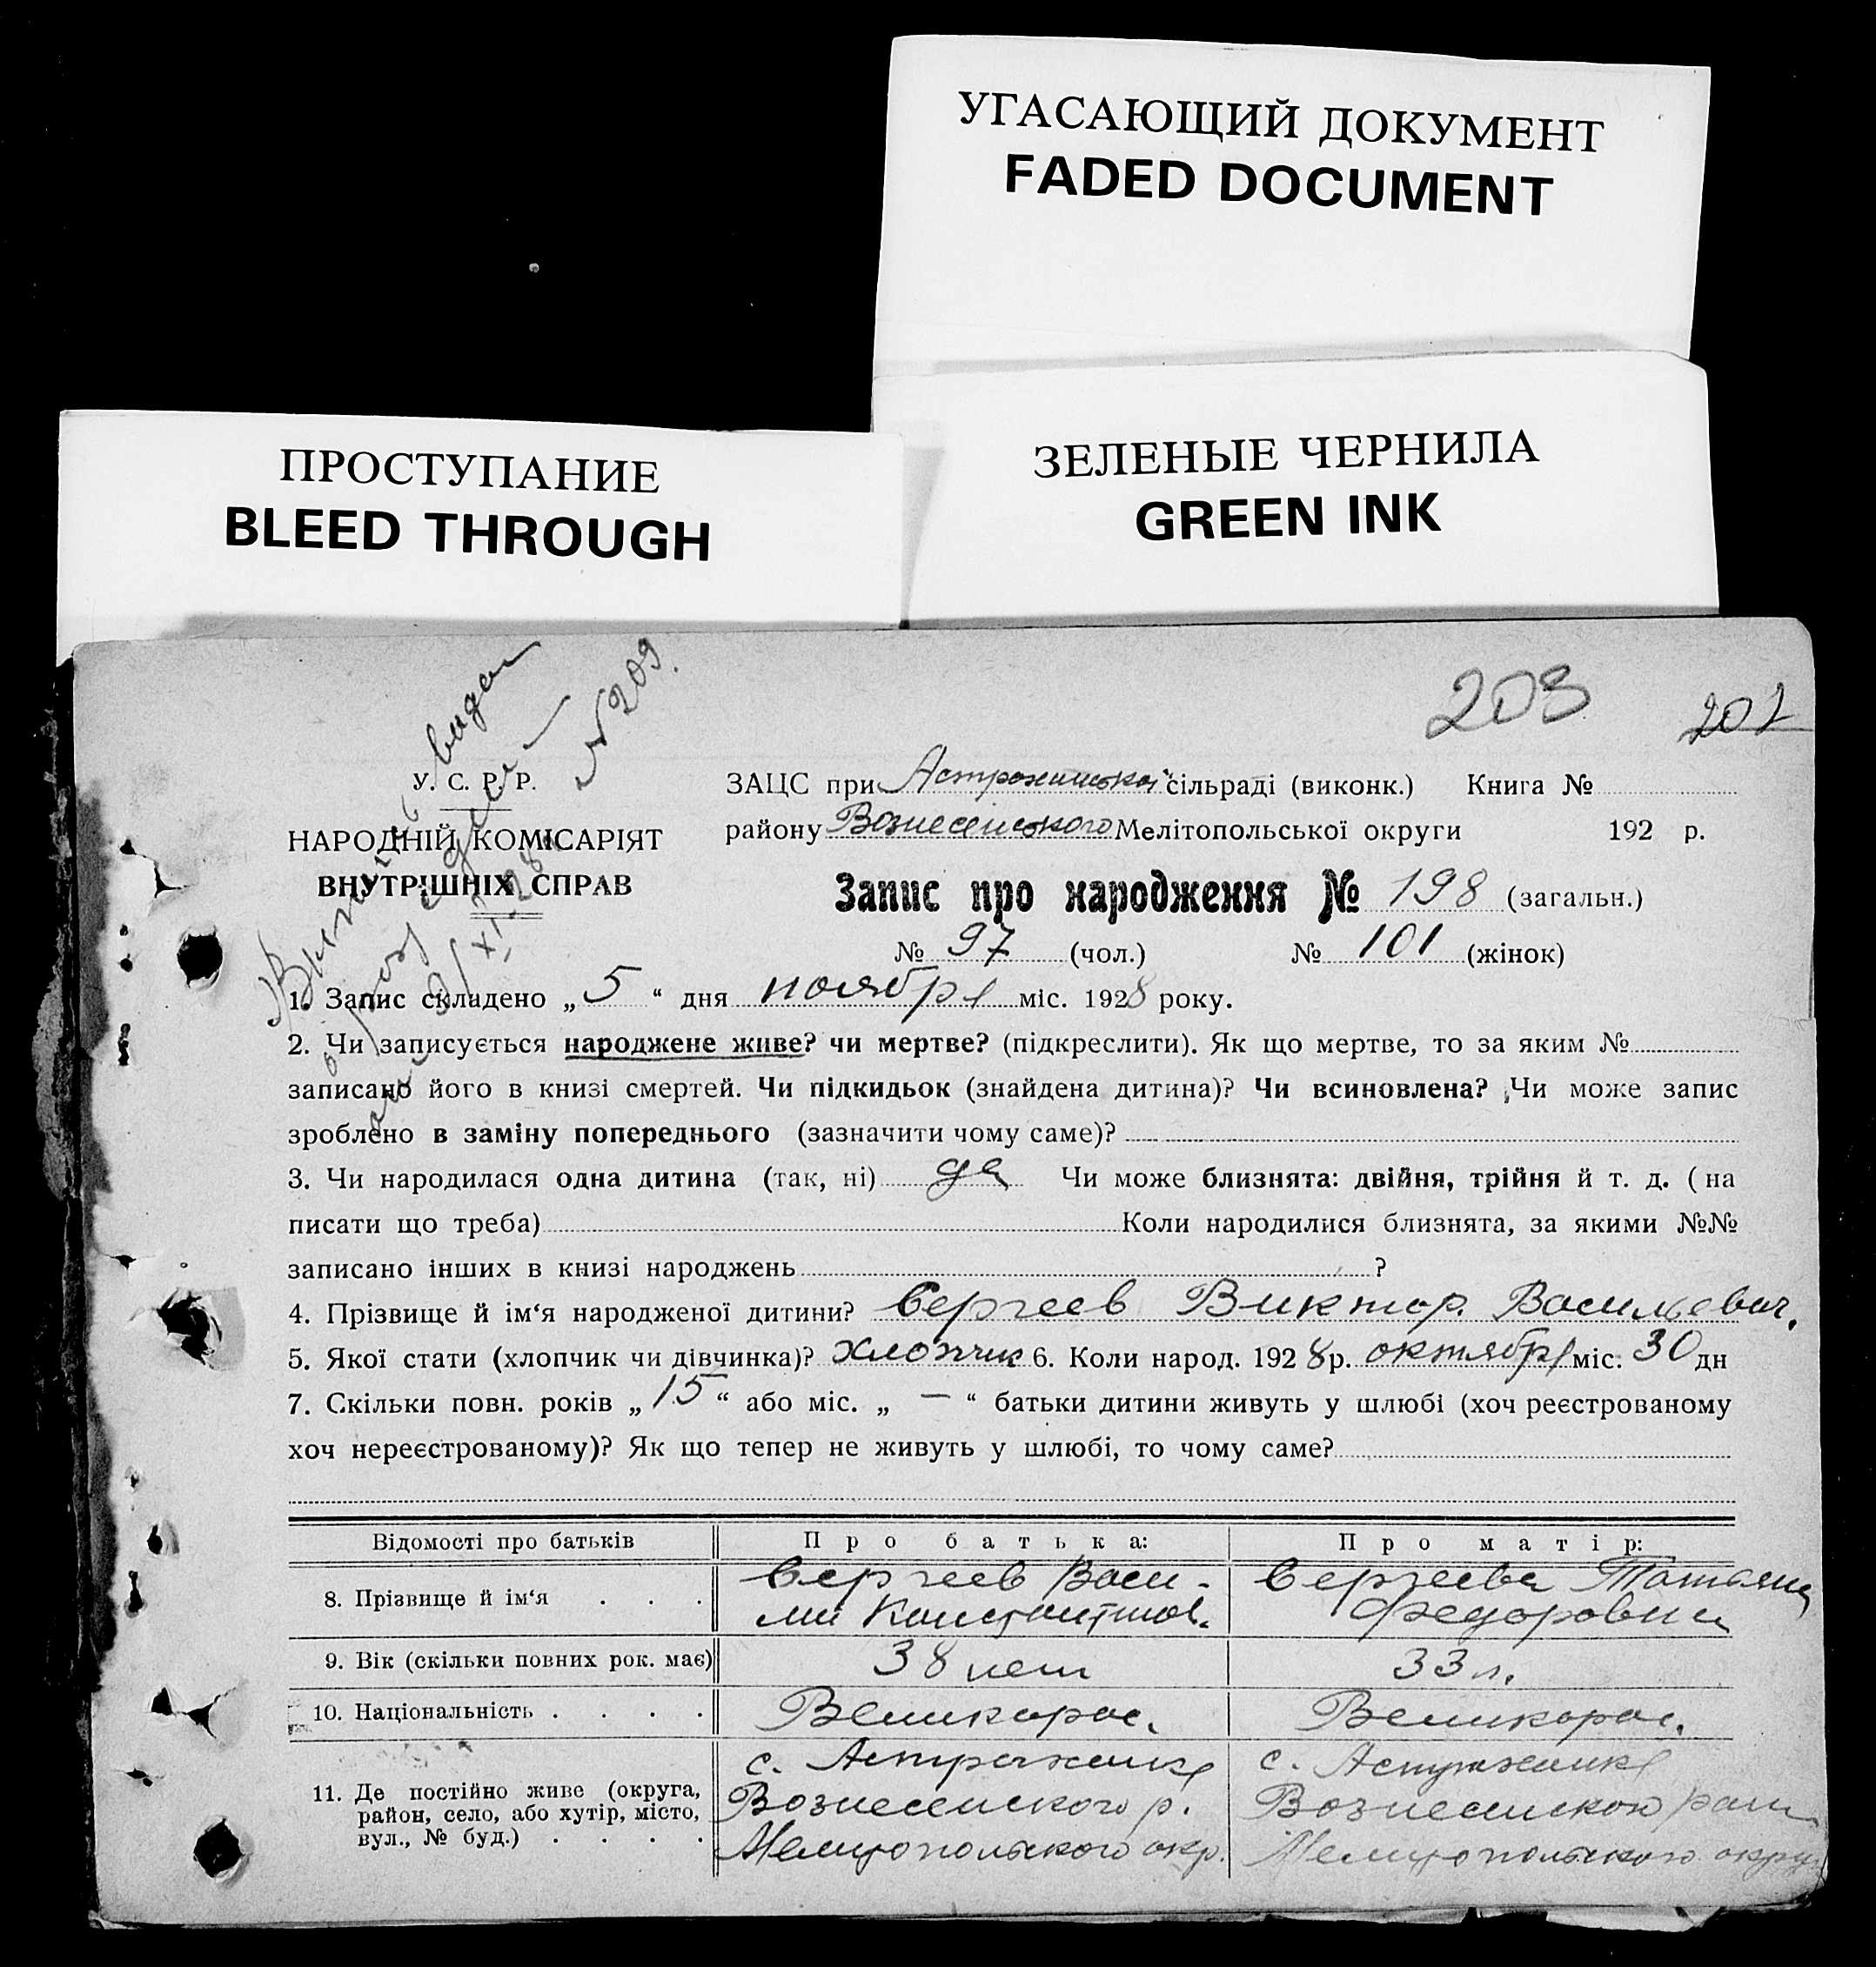 УГАСАЮЩИЙ ДОКУМЕНТ
FADED DOCUMENT
ПРОСТУПАНИЕ
BLEED THROUGH
ЗЕЛЕНЫЕ ЧЕРНИЛА
GREEN INK
203
202
№ 209.
У. С. Р. Р.
НАРОДНІЙ КОМІСАРІЯТ
ВНУТРІШНІХ СПРАВ
ЗАЦС при Астраханской сільраді (виконк.) Книга №
району Вознесенського Мелітопольської округи 192 р.
Запис про народження № 198 (загальн.)
№ 97 (чол.) № 101 (жінок)
1. Запис складено „ 5 “ дня ноября міс. 1928 року.
2. Чи записується народжене живе? чи мертве? (підкреслити). Як що мертве, то за яким №
записано його в книзі смертей. Чи підкидьок (знайдена дитина)? Чи всиновлена? Чи може запис
зроблено в заміну попереднього (зазначити чому саме)?
3. Чи народилася одна дитина (так, ні) да Чи може близнята: двійня, трійня й т. д. (на
писати що треба) Коли народилися близнята, за якими №№
записано інших в книзі народжень ?
4. Прізвище й ім‘я народженої дитини? Сергеев Виктор. Васильевич.
5. Якої стати (хлопчик чи дівчинка)? хлопчик 6. Коли народ. 1928 р. октября міс. 30 дн
7. Скільки повн. років „ 15 “ або міс. „ — “ батьки дитини живуть у шлюбі (хоч реєстрованому
хоч нереєстрованому)? Як що тепер не живуть у шлюбі, то чому саме?
Відомості про батьків Про батька: Про матір:
8. Прізвище й ім‘я . . . Сергеев Васи- Сергеева Татьяна
лий Константинов. Федоровна
9. Вік (скільки повних рок. має) 38 лет 33 л.
10. Національність . . . . Великорос. Великорос.
11. Де постійно живе (округа, район, село, або хутір, місто, вул., № буд.) . . . .
с. Астраханка с. Астраханка
Вознесенского р. Вознесенского
Мелитопольского окр. Мелитопольского